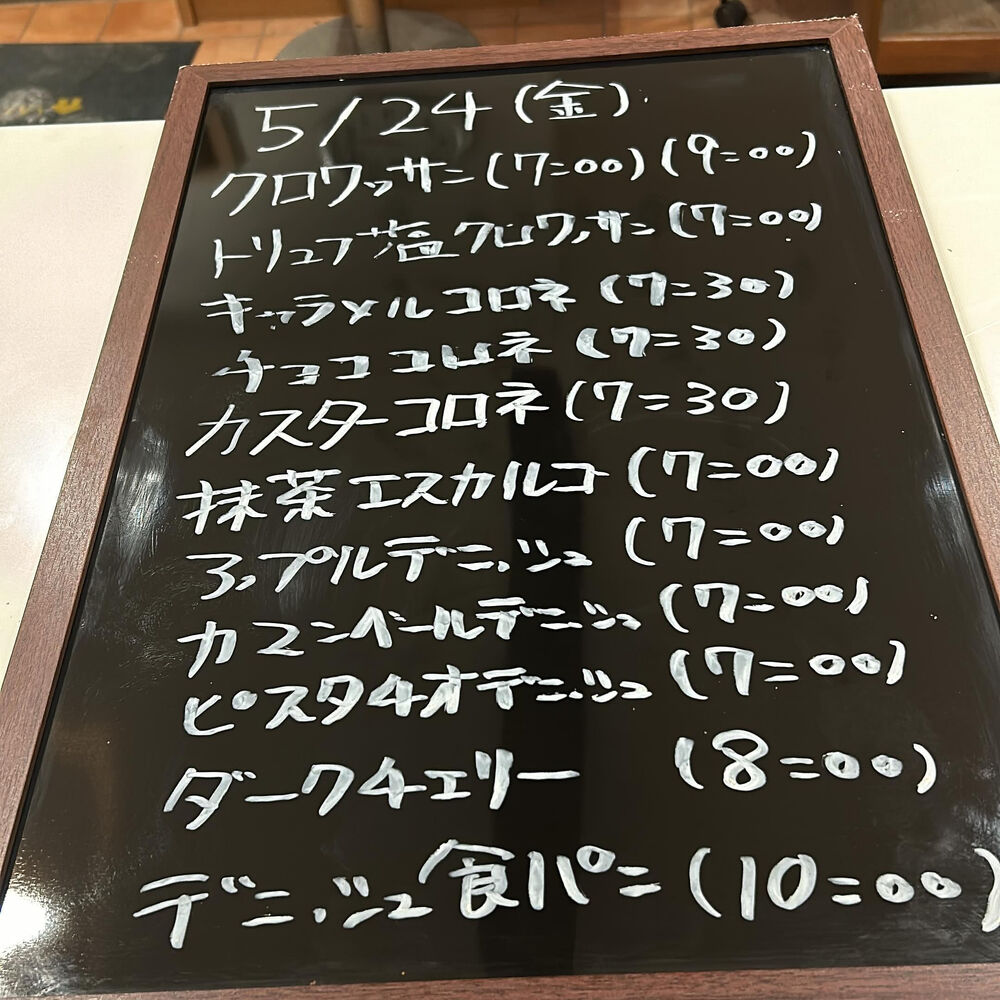 5/24(金)
クロワッサン(7:00)(9:00)
トリュフ塩クロワッサン(7:00)
キャラメルコロネ(7:30)
チョココロネ(7:30)
カスターコロネ(7:30)
抹茶エスカルゴ(7:00)
アップルデニッシュ(7:00)
カマンベールデニッシュ(7:00)
ピスタチオデニッシュ(7:00)
ダークチェリー(8:00)
デニッシュ食パン(10:00)